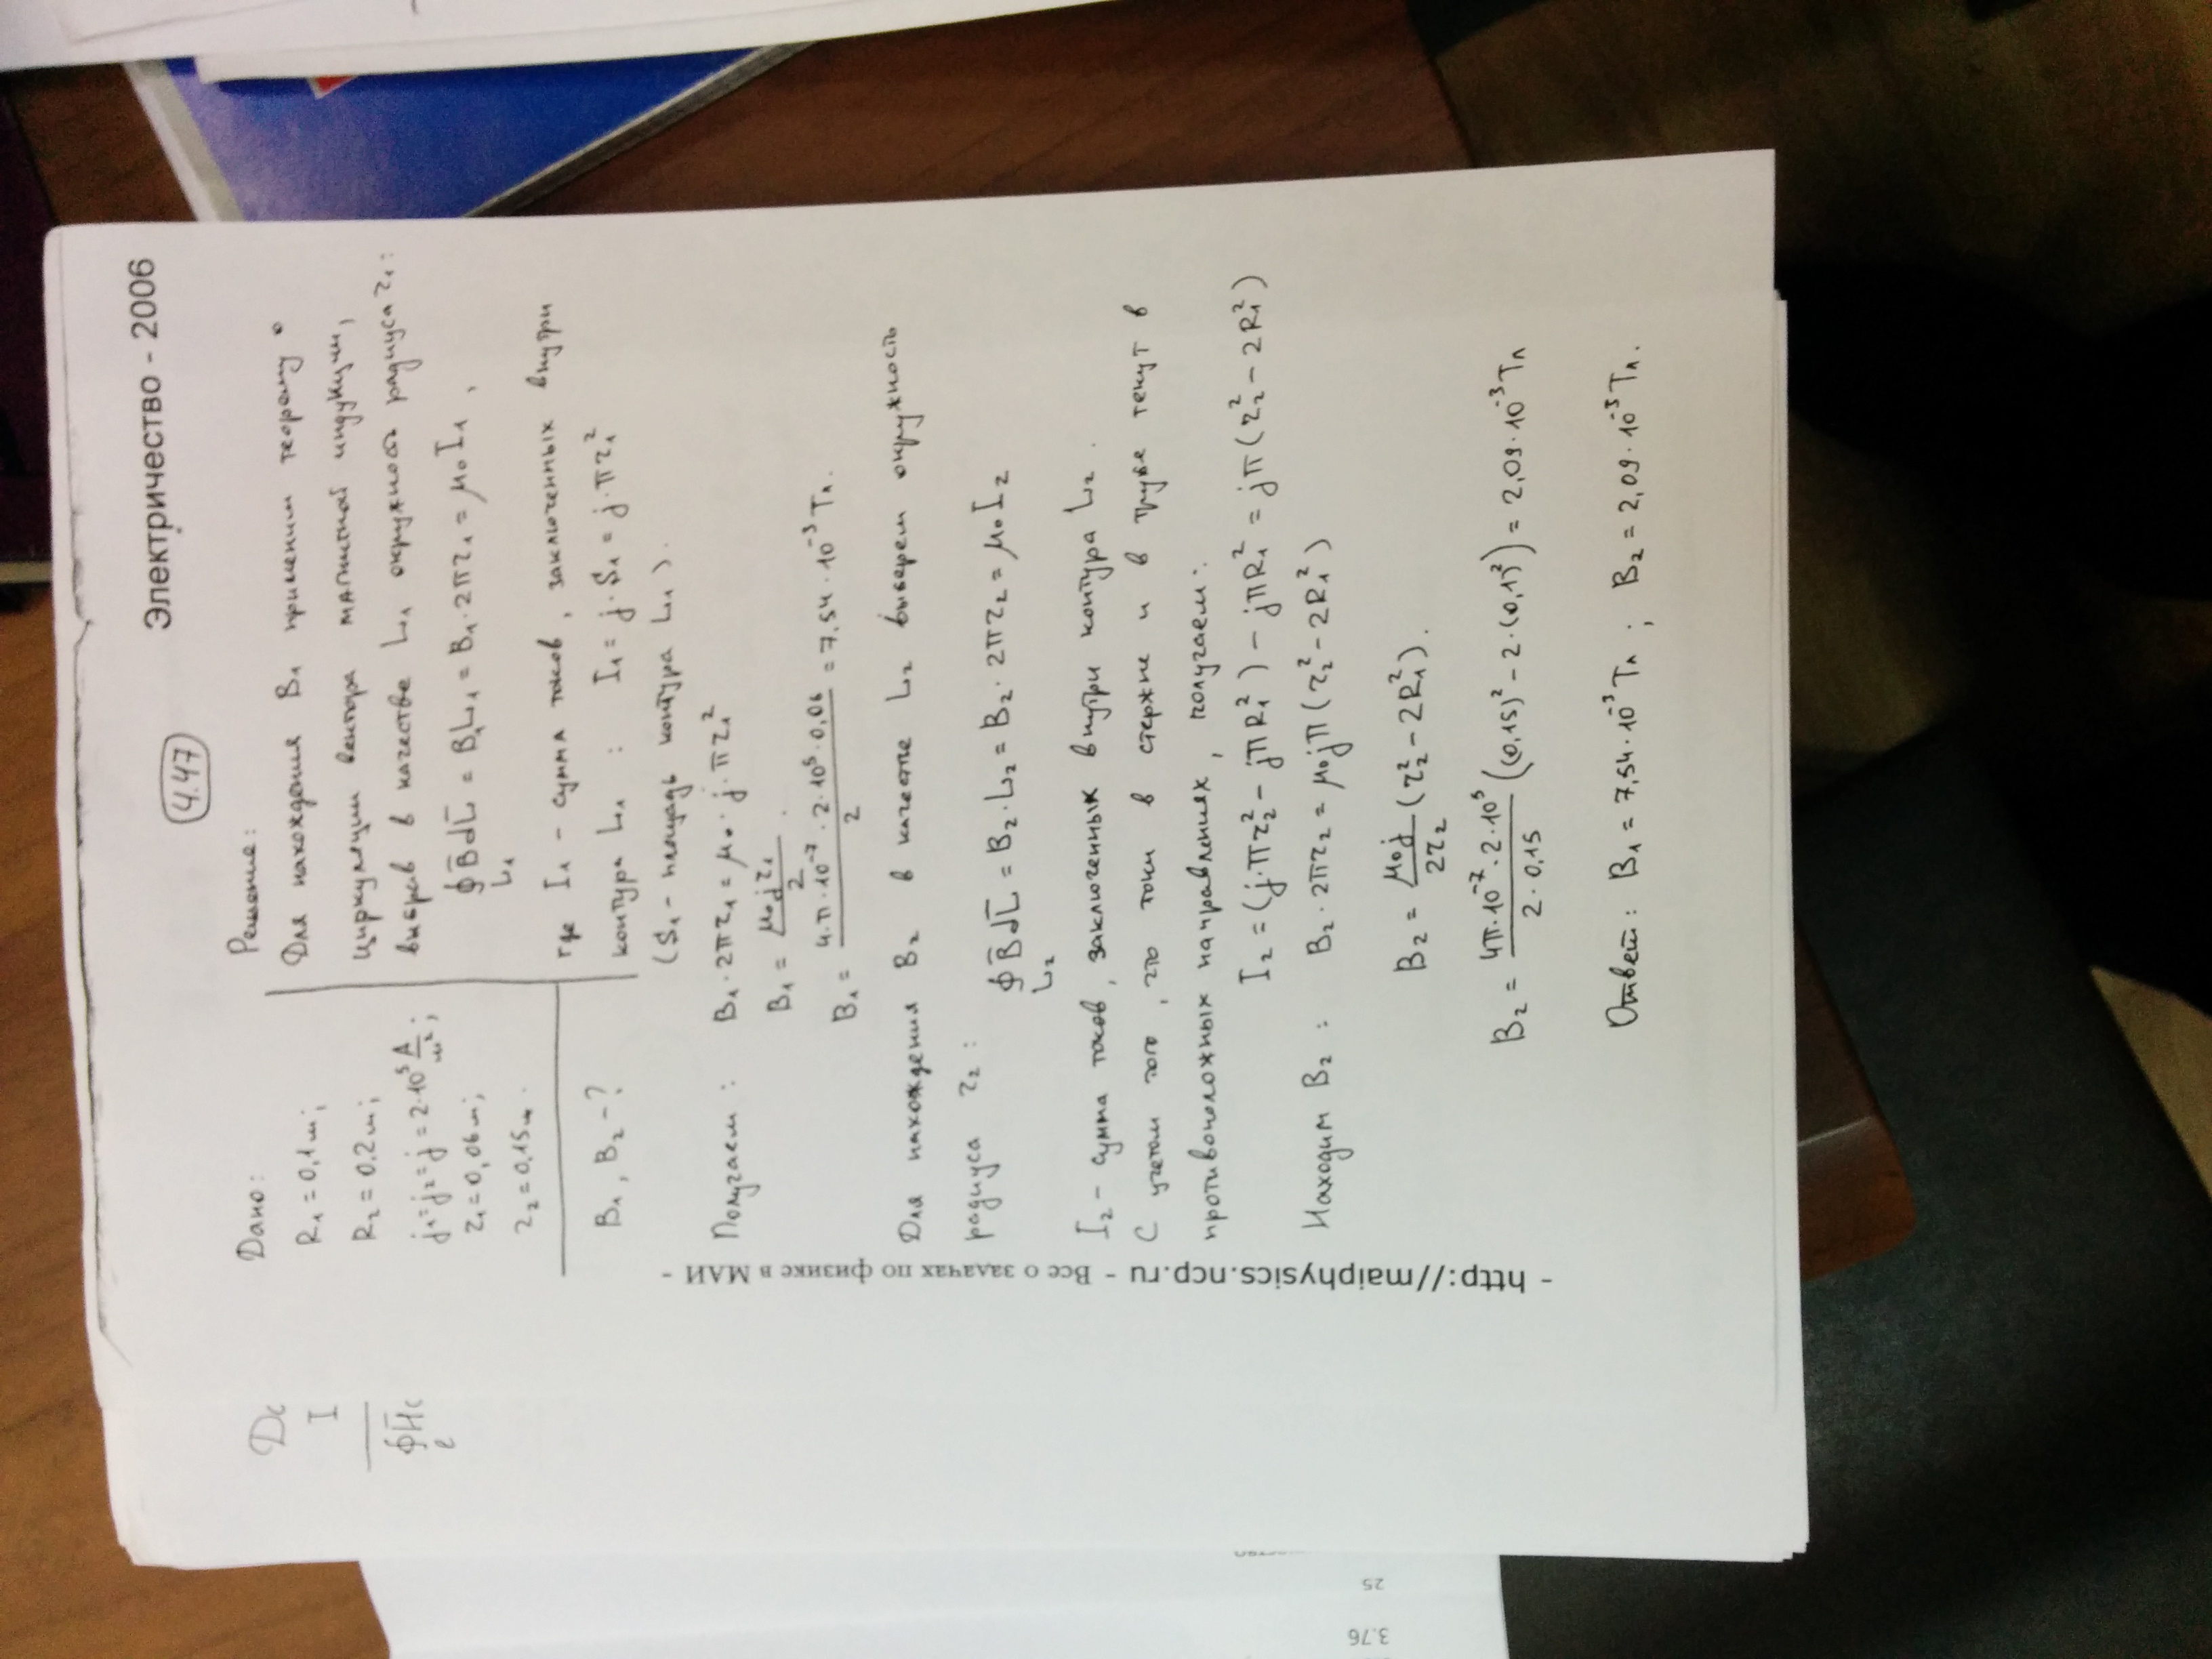 Электричество - 2006
4.47
Дано:
R₁ = 0,1 м;
R₂ = 0,2 м;
j₁ = j₂ = j = 2·10⁵ А/м²;
r₁ = 0,06 м;
r₂ = 0,15 м.
B₁, B₂ - ?
Решение:
Для нахождения B₁ применим теорему о
циркуляции вектора магнитной индукции,
выбрав в качестве L₁ окружность радиуса r₁:
∮_L₁ B̄dL̄ = B₁L₁ = B₁·2πr₁ = μ₀I₁,
где I₁ - сумма токов, заключенных внутри
контура L₁: I₁ = j·S₁ = j·πr₁²
(S₁ - площадь контура L₁).
Получаем: B₁·2πr₁ = μ₀·j·πr₁²
B₁ = μ₀jr₁/2.
B₁ = 4·π·10⁻⁷·2·10⁵·0,06/2 = 7,54·10⁻³ Тл.
Для нахождения B₂ в качестве L₂ выберем окружность
радиуса r₂: ∮_L₂ B̄dL̄ = B₂·L₂ = B₂·2πr₂ = μ₀I₂
I₂ - сумма токов, заключенных внутри контура L₂.
С учетом того, что токи в стержне и в трубе текут в
противоположных направлениях, получаем:
I₂ = (j·πr₂² - jπR₁²) - jπR₁² = jπ(r₂² - 2R₁²)
Находим B₂: B₂·2πr₂ = μ₀jπ(r₂² - 2R₁²)
B₂ = μ₀j/2r₂ (r₂² - 2R₁²).
B₂ = 4π·10⁻⁷·2·10⁵/2·0,15 ((0,15)² - 2·(0,1)²) = 2,09·10⁻³ Тл
Ответ: B₁ = 7,54·10⁻³ Тл; B₂ = 2,09·10⁻³ Тл.
- http://maiphysics.ncp.ru - Все о задачах по физике в МАИ -
I
∮H̄
25
3.76